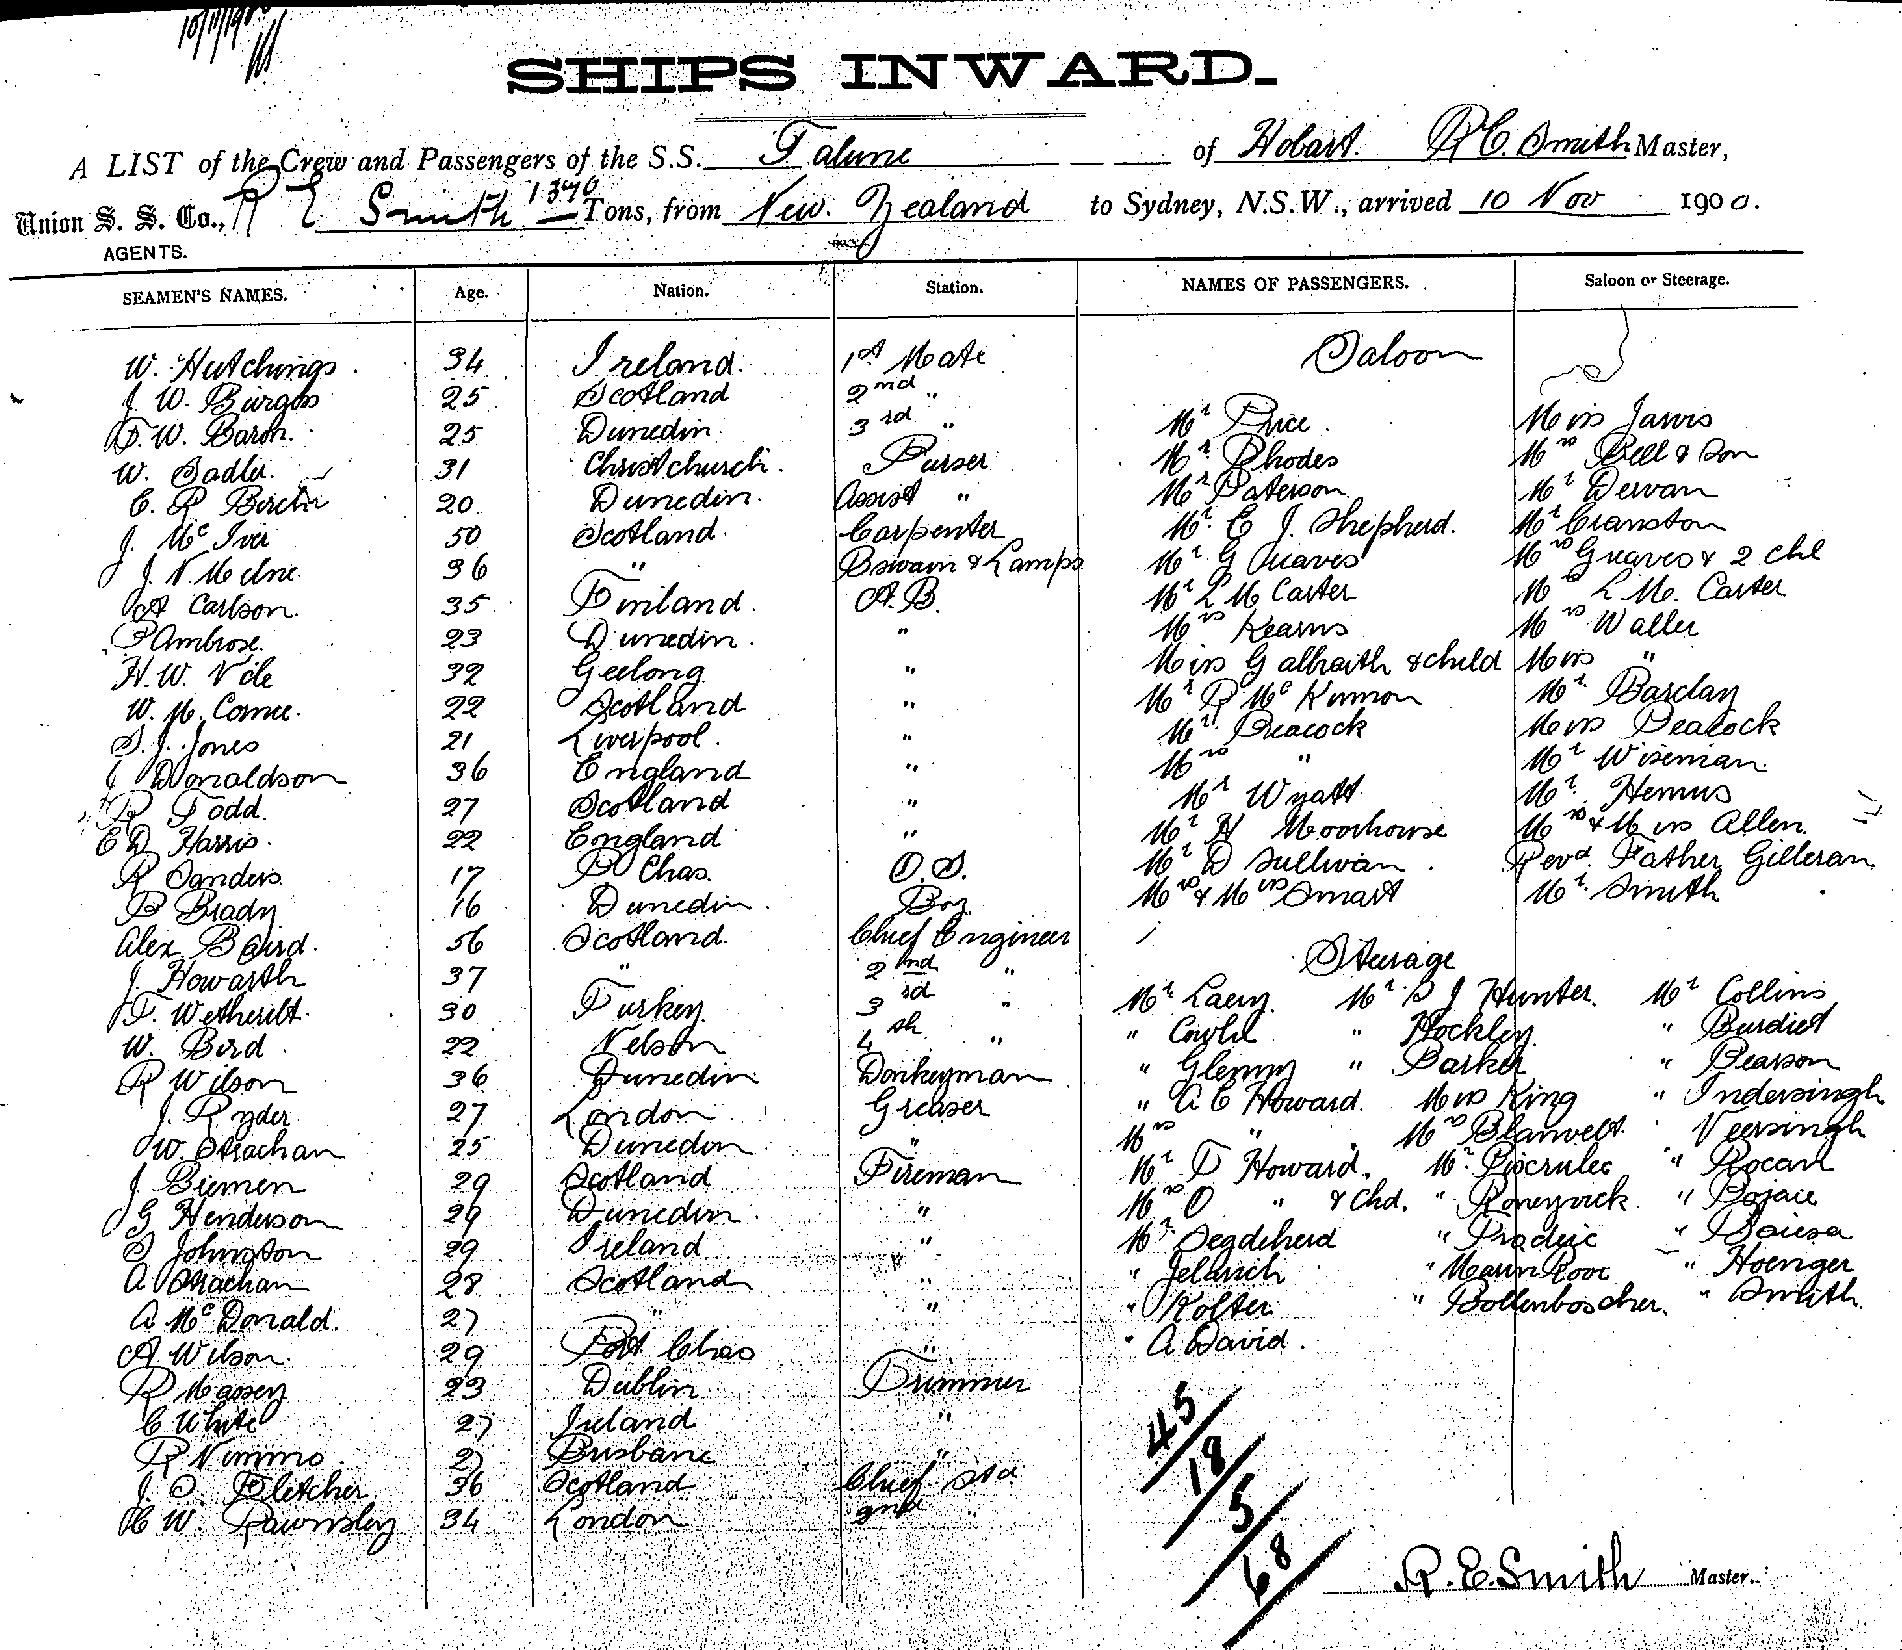 10/11/1900
SHIPS INWARD.
A LIST of the Crew and Passengers of the S.S. Talune of Hobart. R E. Smith Master,
Union S. S. Co., R E Smith 1370 Tons, from New Zealand to Sydney, N.S.W., arrived 10 Nov 1900.
AGENTS.
SEAMEN'S NAMES. Age. Nation. Station. NAMES OF PASSENGERS. Saloon or Steerage.
W. Hutchings. 34 Ireland. 1st Mate Saloon
J. W. Burgess 25 Scotland 2nd "
F. W. Baron. 25 Dunedin 3rd " Mr Price. Miss Jarvis
W. Sadler. 31 Christchurch. Purser Mr Rhodes Mrs Bell & Son
C. R Birch 20. Dunedin. Assist " Mr Paterson Mr Dervan
J. Mc Iver 50 Scotland. Carpenter Mr. E J. Shepherd. Mr Cranston
J. N. Milne. 36 " Bswain & Lamps Mr G Greaves Mrs Greaves & 2 chl
A Carlson. 35 Finland. A.B. Mr L M Carter Mrs L M. Carter
P Ambrose. 23 Dunedin. " Mrs Kearns Mrs Waller
H. W. Vile 32 Geelong " Miss Galbraith & child Miss "
W. M. Comee. 22 Scotland " Mr R Mc Kinnon Mr Barclay
S. J. Jones 21 Liverpool. " Mr Peacock Miss Peacock
J Donaldson 36 England " Mrs " Mr Wiseman.
R Todd. 27 Scotland " Mr Wyatt Mr. Hemus
E D Harris. 22 England " Mr H Moorhouse Mrs & Miss Allen.
R Sanders. 17 P Chas. O.S. Mr D Sullivan. Revd. Father Gilleran
P Brady 16 Dunedin. Boy Mrs & Miss Smart Mr. Smith
Alex Baird. 56 Scotland. Chief Engineer
J. Howarth 37 " 2nd " Steerage
T. Wetherilt. 30 Turkey. 3rd " Mr. Laery Mr. S J Hunter. Mr Collins
W. Bird. 22 Nelson 4th " " Cowld " Hockley. " Burdied
R Wilson 36 Dunedin Donkeyman " Glenny " Barker " Pearson
J. Ryder 27 London Greaser " A E Howard. Miss King " Indersingh
W. Strachan 25 Dunedin " Mrs " Mrs Blanvelt. Veersingh
J. Biemen 29 Scotland Fireman Mr F Howard. Mr. " Rocan
J G Henderson 29 Dunedin " Mrs O " & Chd. " " Bojace
S Johnston 29 Ireland " Mr. " " Sousa
A Strachan 28 Scotland " " Jelavich " " Hoenger
A Mc Donald. 27 " " " Kolter " Bollenboscher. " Smith.
A Wilson. 29 Port Chas " " A David.
R Massey 23 Dublin Trimmer
C White 27 Ireland "
R Nimmo. 27 Brisbane "
J. S. Fletcher 36 Scotland Chief Std
H W. Rawnsley 34 London 2nd "
45/
18/
5/
68/
R. E. Smith Master.